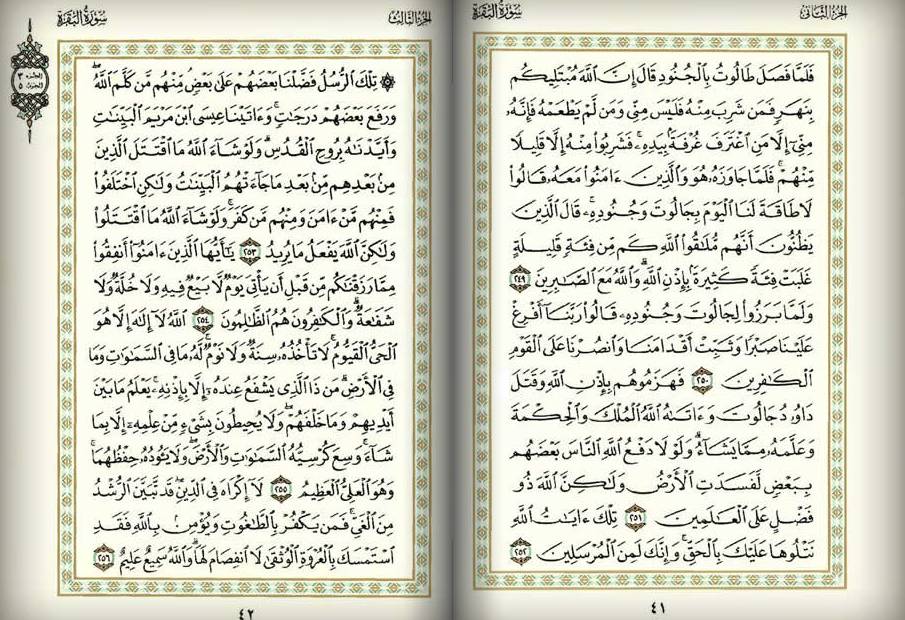 الجزء الثاني
سورة البقرة
فَلَمَّا فَصَلَ طَالُوتُ بِالْجُنُودِ قَالَ إِنَّ اللَّهَ مُبْتَلِيكُم
بِنَهَرٍ فَمَن شَرِبَ مِنْهُ فَلَيْسَ مِنِّي وَمَن لَّمْ يَطْعَمْهُ فَإِنَّهُ
مِنِّي إِلَّا مَنِ اغْتَرَفَ غُرْفَةً بِيَدِهِ فَشَرِبُوا مِنْهُ إِلَّا قَلِيلًا
مِّنْهُمْ فَلَمَّا جَاوَزَهُ هُوَ وَالَّذِينَ ءَامَنُوا مَعَهُ قَالُوا
لَا طَاقَةَ لَنَا الْيَوْمَ بِجَالُوتَ وَجُنُودِهِ قَالَ الَّذِينَ
يَظُنُّونَ أَنَّهُم مُّلَاقُوا اللَّهِ كَم مِّن فِئَةٍ قَلِيلَةٍ
غَلَبَتْ فِئَةً كَثِيرَةً بِإِذْنِ اللَّهِ وَاللَّهُ مَعَ الصَّابِرِينَ ٢٤٩
وَلَمَّا بَرَزُوا لِجَالُوتَ وَجُنُودِهِ قَالُوا رَبَّنَا أَفْرِغْ
عَلَيْنَا صَبْرًا وَثَبِّتْ أَقْدَامَنَا وَانصُرْنَا عَلَى الْقَوْمِ
الْكَافِرِينَ ٢٥٠ فَهَزَمُوهُم بِإِذْنِ اللَّهِ وَقَتَلَ
دَاوُدُ جَالُوتَ وَءَاتَاهُ اللَّهُ الْمُلْكَ وَالْحِكْمَةَ
وَعَلَّمَهُ مِمَّا يَشَاءُ وَلَوْلَا دَفْعُ اللَّهِ النَّاسَ بَعْضَهُم
بِبَعْضٍ لَّفَسَدَتِ الْأَرْضُ وَلَكِنَّ اللَّهَ ذُو
فَضْلٍ عَلَى الْعَالَمِينَ ٢٥١ تِلْكَ ءَايَاتُ اللَّهِ
نَتْلُوهَا عَلَيْكَ بِالْحَقِّ وَإِنَّكَ لَمِنَ الْمُرْسَلِينَ ٢٥٢
٤١
الجزء الثالث
سورة البقرة
الجزء ٣
الحزب ٥
۞ تِلْكَ الرُّسُلُ فَضَّلْنَا بَعْضَهُمْ عَلَى بَعْضٍ مِّنْهُم مَّن كَلَّمَ اللَّهُ
وَرَفَعَ بَعْضَهُمْ دَرَجَاتٍ وَءَاتَيْنَا عِيسَى ابْنَ مَرْيَمَ الْبَيِّنَاتِ
وَأَيَّدْنَاهُ بِرُوحِ الْقُدُسِ وَلَوْ شَاءَ اللَّهُ مَا اقْتَتَلَ الَّذِينَ
مِن بَعْدِهِم مِّن بَعْدِ مَا جَاءَتْهُمُ الْبَيِّنَاتُ وَلَكِنِ اخْتَلَفُوا
فَمِنْهُم مَّنْ ءَامَنَ وَمِنْهُم مَّن كَفَرَ وَلَوْ شَاءَ اللَّهُ مَا اقْتَتَلُوا
وَلَكِنَّ اللَّهَ يَفْعَلُ مَا يُرِيدُ ٢٥٣ يَا أَيُّهَا الَّذِينَ ءَامَنُوا أَنفِقُوا
مِمَّا رَزَقْنَاكُم مِّن قَبْلِ أَن يَأْتِيَ يَوْمٌ لَّا بَيْعٌ فِيهِ وَلَا خُلَّةٌ وَلَا
شَفَاعَةٌ وَالْكَافِرُونَ هُمُ الظَّالِمُونَ ٢٥٤ اللَّهُ لَا إِلَهَ إِلَّا هُوَ
الْحَيُّ الْقَيُّومُ لَا تَأْخُذُهُ سِنَةٌ وَلَا نَوْمٌ لَّهُ مَا فِي السَّمَاوَاتِ وَمَا
فِي الْأَرْضِ مَن ذَا الَّذِي يَشْفَعُ عِندَهُ إِلَّا بِإِذْنِهِ يَعْلَمُ مَا بَيْنَ
أَيْدِيهِمْ وَمَا خَلْفَهُمْ وَلَا يُحِيطُونَ بِشَيْءٍ مِّنْ عِلْمِهِ إِلَّا بِمَا
شَاءَ وَسِعَ كُرْسِيُّهُ السَّمَاوَاتِ وَالْأَرْضَ وَلَا يَئُودُهُ حِفْظُهُمَا
وَهُوَ الْعَلِيُّ الْعَظِيمُ ٢٥٥ لَا إِكْرَاهَ فِي الدِّينِ قَد تَّبَيَّنَ الرُّشْدُ
مِنَ الْغَيِّ فَمَن يَكْفُرْ بِالطَّاغُوتِ وَيُؤْمِن بِاللَّهِ فَقَدِ
اسْتَمْسَكَ بِالْعُرْوَةِ الْوُثْقَى لَا انفِصَامَ لَهَا وَاللَّهُ سَمِيعٌ عَلِيمٌ ٢٥٦
٤٢